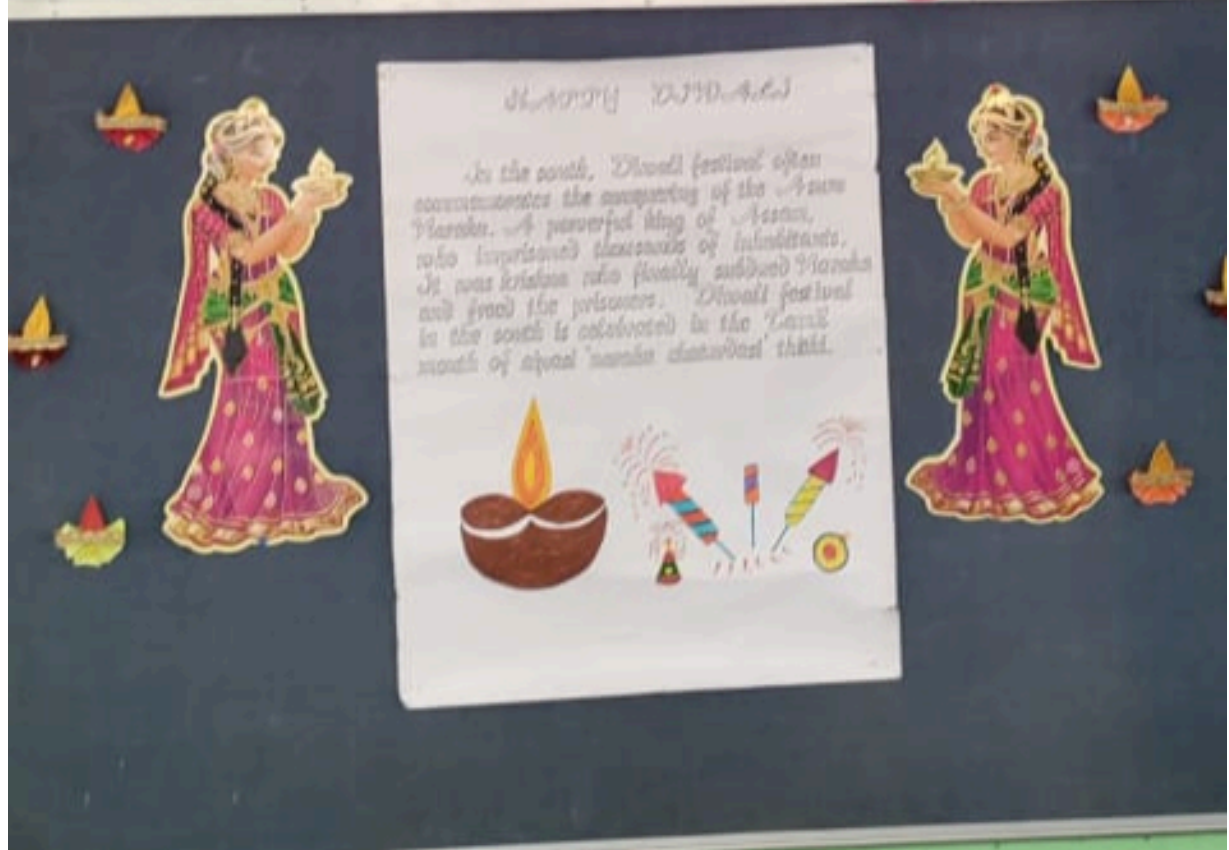 HAPPY DIWALI
In the south, Diwali festival often
commemorates the conquering of the Asura
Naraka. A powerful king of Assam,
who imprisoned thousands of inhabitants.
It was krishna who finally subdued Naraka
and freed the prisoners. Diwali festival
in the south is celebrated in the Tamil
month of aipasi 'naraka chaturdasi' thithi.